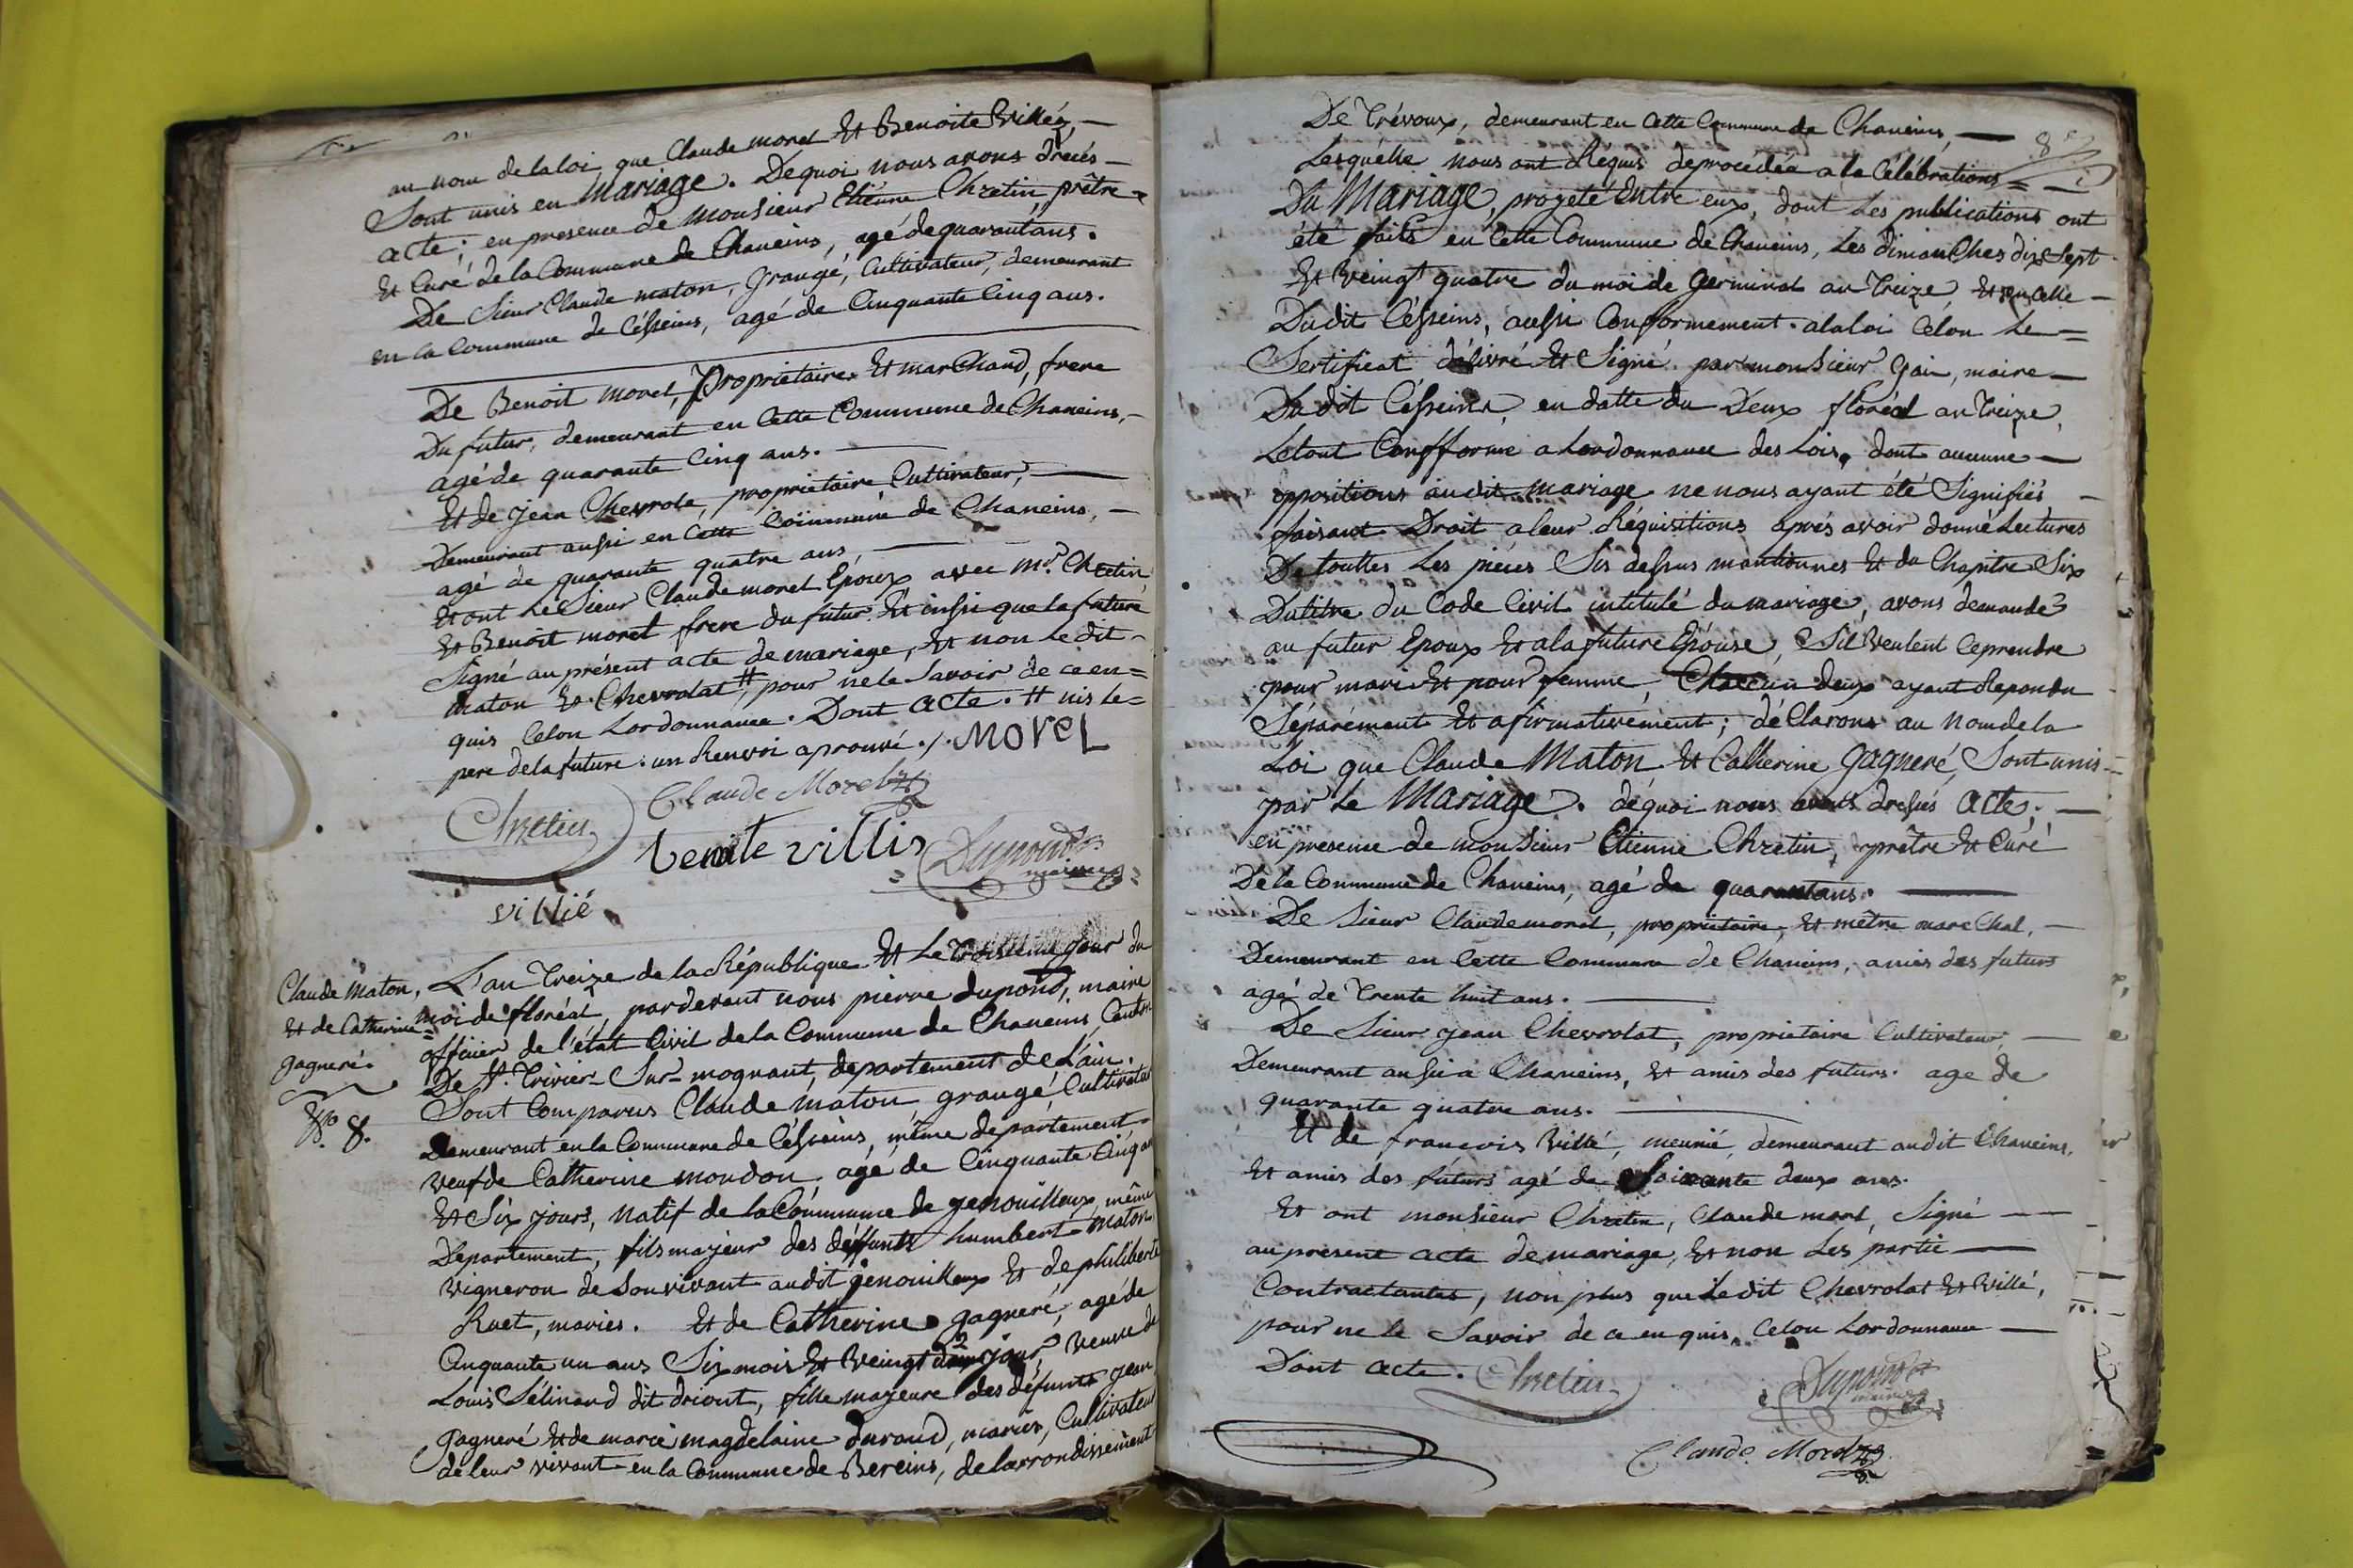 au nom delaloi que Claude morel Et Benoite Villéz, —
Sont unis en Mariage. Dequoi nous avons drecés —
acte; en presence de Monsieur Etiénne Chretin, prêtre =
Et Curé dela Commune de Chaneins, agé dequarantans.
De Sieur Claude maton, grangé, Cultivateur, demeurant
en la Commune de Césseins, agé de Cinquante Cinq ans.
De Benoit morel, Propriétaire Et marChand, frere
Du futur, demeurant en Cette Commune de Chaneins, —
agé de quarante Cinq ans. —
Et de jean Chevrote, propriétaire Cultivateur, —
Demeurant aussi en Cette Commune de Chaneins, —
agé de quarante quatre ans, —
Et ont Le Sieur Claude morel Epoux avec mr. Chretin
Et Benoit morel frere du futur Et insi que la future
Signé au présent acte de mariage, Et non Le dit —
maton Et Chevrolat #, pour nele Savoir de ce en =
quis Celon Lordonnance. Dont acte. # nis le =
pere dela future: un Renvoi aprouvé ./. MOREL
Claude Morel
Chretin
benoite villis
Dupond
maire
villié
Claude Maton,
Et de Catherine
gagneré.
No. 8.
L'an Treize de la République Et Le Troisième jour du
moi de floréal, pardevant nous pierre dupond, maire
officier de l'état Civil dela Commune de Chaneins, Canton
De St. Trivier-Sur-mognant, departement de Lain.
Sont Comparus Claude maton grangé Cultivateur
Demeurant en la Commune de Césseins, même departement
veuf de Catherine mondon, agé de Cinquante Cinq ans
Et Six jours, natif de la Commune de genouilleux, même
Departement, fils majeur des déffunts humbert maton
vigneron de Son vivant audit genouilleux Et de philiberte
Ruet, mariés. Et de Catherine gagneré, agé de
Cinquante un ans Six mois Et Veingt deux jour, Veuve de
Louis Sélinand dit driout, fille majeure des défunts jean
gagneré Et de marie magdelaine durand, mariés, Cultivateur
de leur vivant en la Commune de Bereins, de larrondissement
8e
De Trévoux, demeurant en Cette Commune de Chaneins, —
Lesquélle nous ont Réquis deprocédée a la Célébrations =
Du Mariage, projeté Entre eux, dont Les publications ont
été faits en Cette Commune de Chaneins, Les dimanChes dixSept
Et Veingt quatre du moi de germinal an Treize, Et en Celle —
Dudit Césseins, aussi Conformement alaloi Célon Le =
Sertificat délivré Et Signé par monsieur gai, maire —
Du dit Césseins, en datte du Deux floréal an Treize,
Letout Confforme a Lordonnance des Lois, dont aucune —
oppositions audit mariage ne nous ayant été Signifiés —
faisant Droit a leur Réquisitions aprés avoir donné Lectures
De touttes Les piéces Sis dessus mantionnes Et du Chapitre Six
Dutitre du Code Civil intitulé du mariage, avons demandé
au futur Epoux Et ala future Epouse, Sil Veulent Ceprendre
pour mari Et pour femme, Chaccun deux ayant Repondu
Séparément Et afirmativément; déClarons au nom de la
Loi que Claude Maton Et Catherine gagneré, Sont unis =
par Le Mariage. déquoi nous avons dressés acte; —
en presence de monsieur Etienne Chretin, prêtre Et Curé
De la Commune de Chaneins, agé de quarantans. —
De Sieur Claude morel, propriétaire, Et mêtre mareChal, —
Demeurant en Cette Commune de Chaneins, amis des futurs
agé de Trente huit ans. —
De Sieur jean Chevrolat, propriétaire Cultivateur, —
Demeurant aussi a Chaneins, Et amis des futurs. age de
quarante quatre ans. —
Et de francois Villé, meunié, demeurant audit Chaneins,
Et amis des futurs agé de Soixante deux ans.
Et ont monsieur Chretin, Claude morel, Signé —
au présent acte de mariage, Et non Lés partie —
Contractantes, non plus que Ledit Chevrolat Et Villé,
pour ne le Savoir de ce en quis, Célon Lordonnance —
Dont acte. Chretin
Dupond
maire
Claude Morel